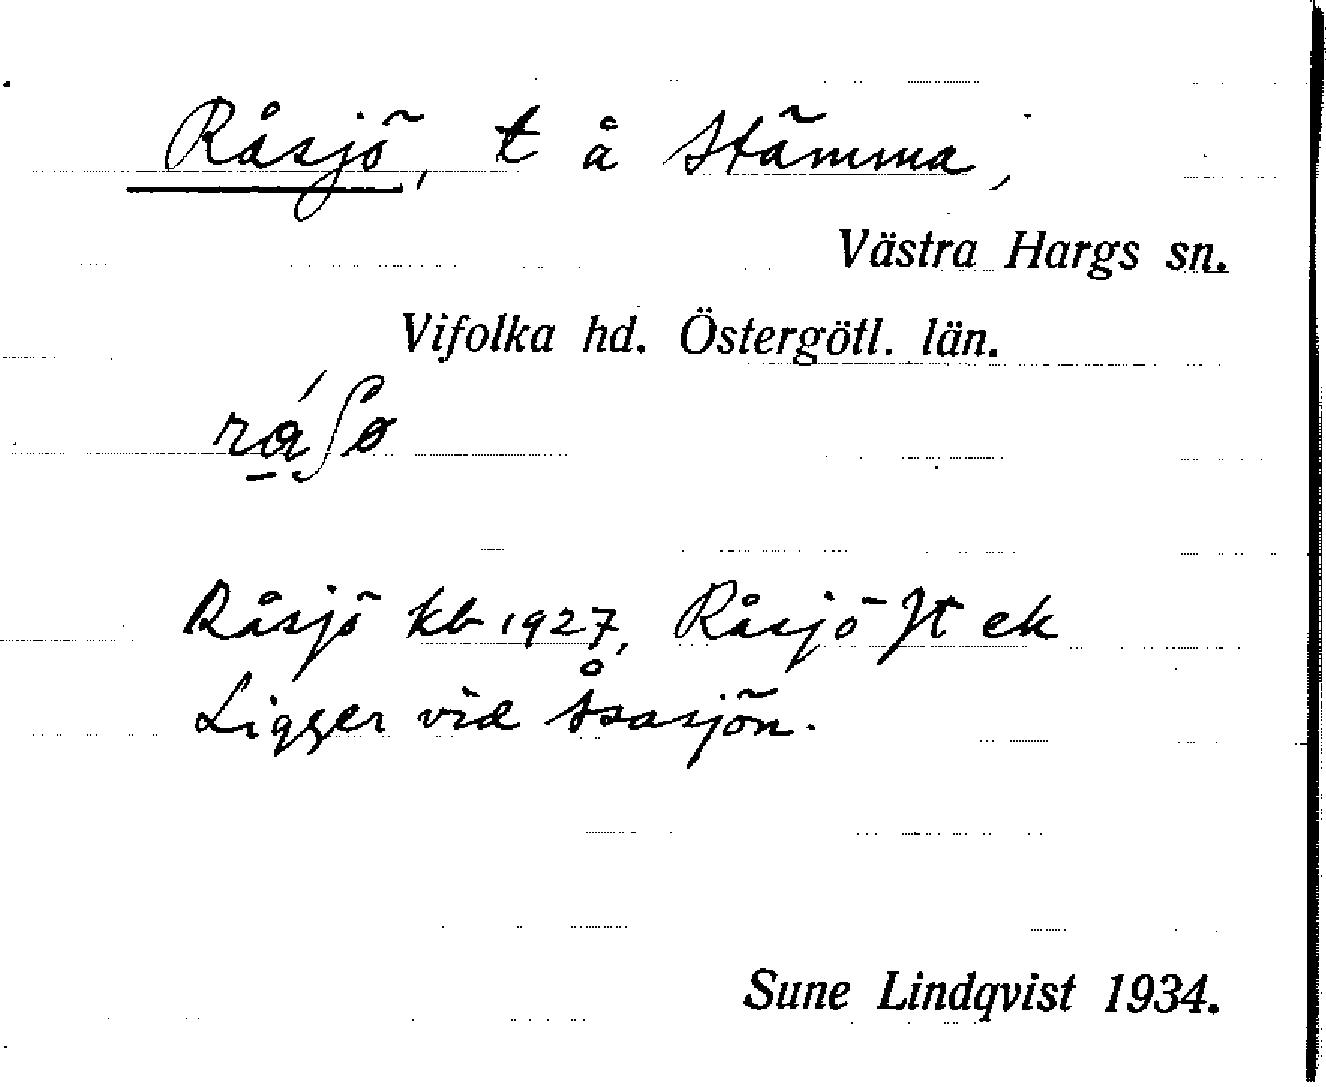 Råsjö, t å Stämma,
Västra Hargs sn.
Vifolka hd. Östergötl. län.
Råsjö kb 1927, Råsjö Jt ek
Ligger vid Åsasjön.
Sune Lindqvist 1934.